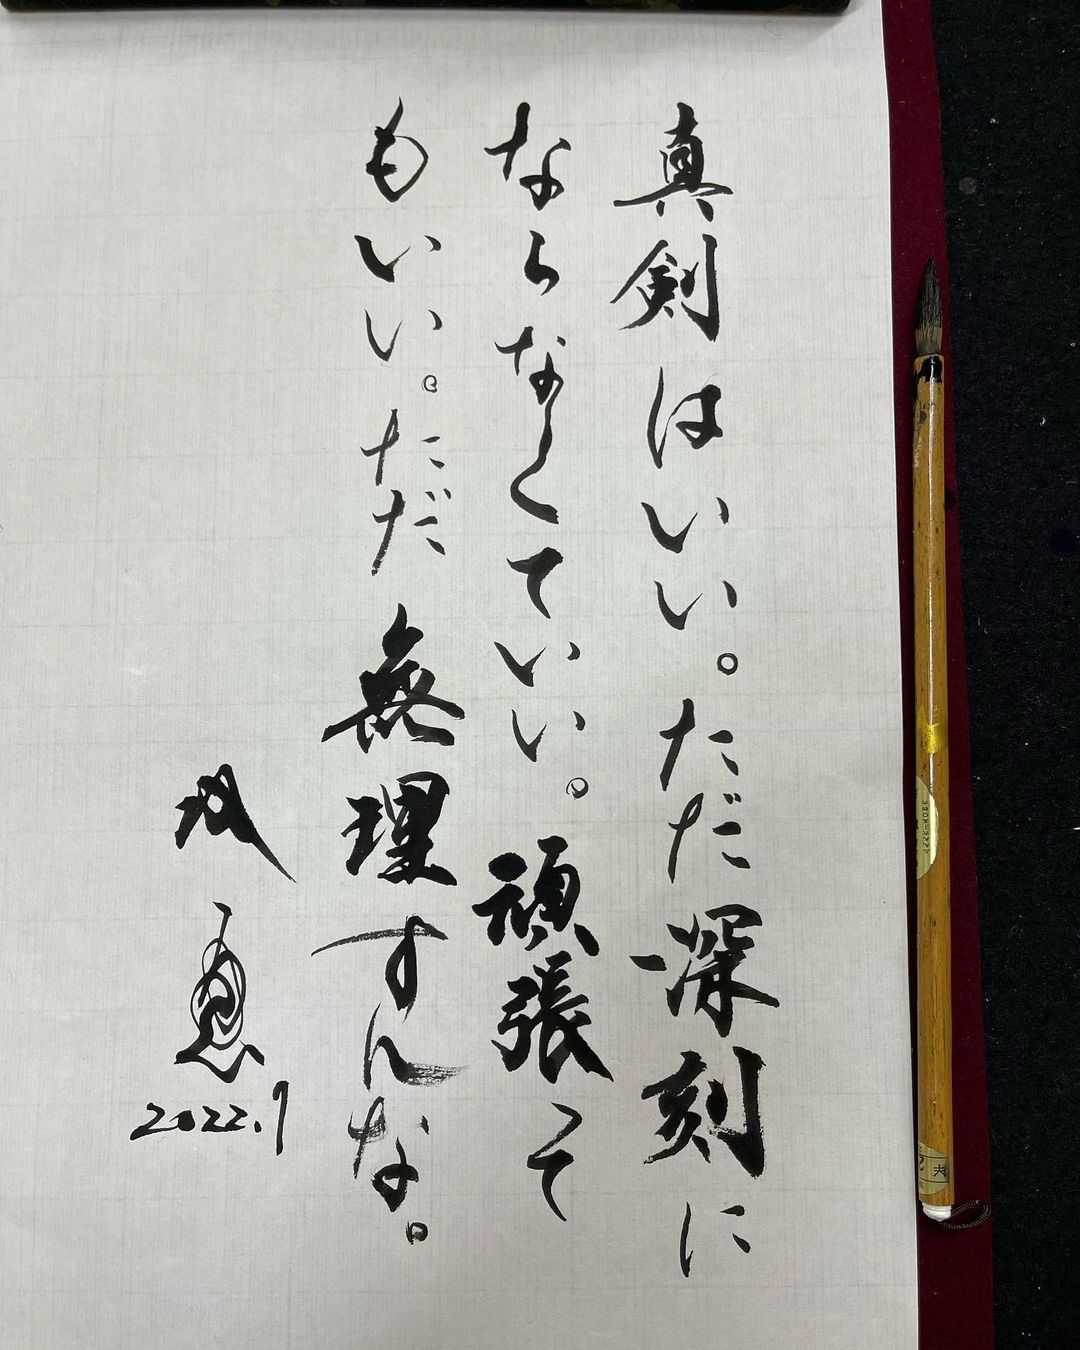 真剣はいい。ただ深刻に
ならなくていい。頑張って
もいい。ただ無理すんな。
2022.1